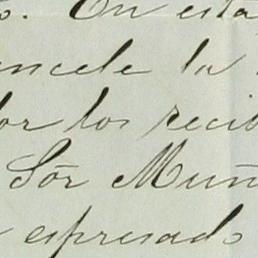 o. En esta
ncele la
or los recib
Sór Muñ
espresado